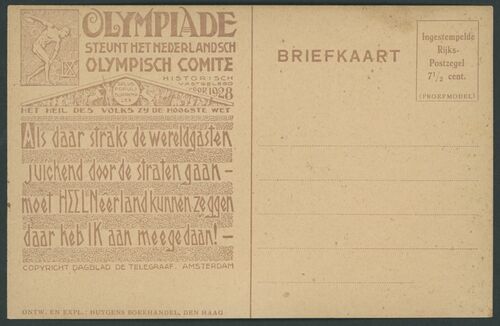 OLYMPIADE
STEUNT HET NEDERLANDSCH
OLYMPISCH COMITE
HISTORISCH
VASTGELEGD
VOOR 1928
IX
SALUS
POPULI
SUPREMA
LEX
HET HEIL DES VOLKS ZY DE HOOGSTE WET
Als daar straks de wereldgasten
juichend door de straten gaan —
moet HEEL Neerland kunnen zeggen
daar heb IK aan meegedaan! —
COPYRIGHT DAGBLAD DE TELEGRAAF. AMSTERDAM
ONTW. EN EXPL.: HUYGENS BOEKHANDEL, DEN HAAG
BRIEFKAART
Ingestempelde
Rijks-
Postzegel
7½ cent.
(PROEFMODEL)